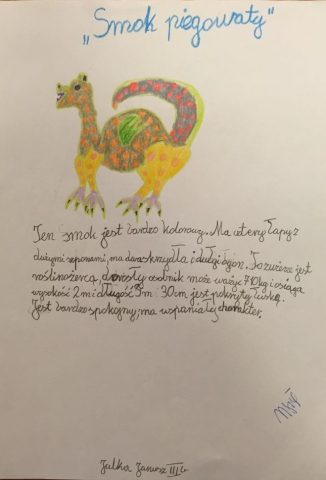 „Smok piegowaty"
Ten smok jest bardzo kolorowy. Ma cztery łapy z
dużymi szponami, ma dwa skrzydła i długi ogon. To zwierze jest
roślinożercą, dorosły osobnik może ważyć 710kg i osiąga
wysokość 2m i długość 3m 30cm jest pokryty łuską.
Jest bardzo spokojny, ma wspaniały charakter.
Julka Janusz III b